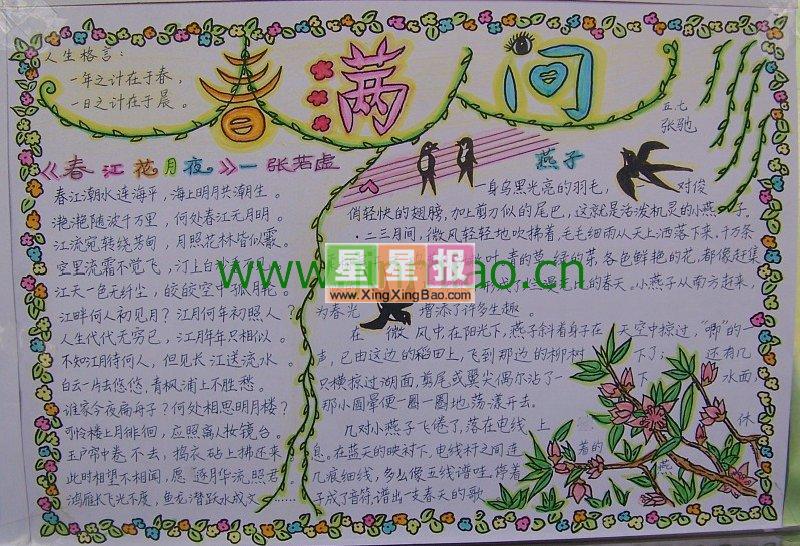 人生格言：
一年之计在于春，
一日之计在于晨。
春满人间
五.七
张驰
《春江花月夜》一张若虚
春江潮水连海平，海上明月共潮生。
滟滟随波千万里，何处春江无月明。
江流宛转绕芳甸，月照花林皆似霰。
空里流霜不觉飞，汀上白
江天一色无纤尘，皎皎空中孤月轮。
江畔何人初见月？江月何年初照人？
人生代代无穷已，江月年年只相似。
不知江月待何人，但见长江送流水。
白云一片去悠悠，青枫浦上不胜愁。
谁家今夜扁舟子？何处相思明月楼？
可怜楼上月徘徊，应照离人妆镜台。
玉户帘中卷不去，捣衣砧上拂还来
此时相望不相闻，愿逐月华流照君。
鸿雁长飞光不度，鱼龙潜跃水成文……
燕子
一身乌黑光亮的羽毛，一对俊
俏轻快的翅膀，加上剪刀似的尾巴，这就是活泼机灵的小燕子。
二三月间，微风轻轻地吹拂着，毛毛细雨从天上洒落下来，千万条
青的草，绿的芽，各色鲜艳的花，都像赶集
的春天。小燕子从南方赶来，
为春光增添了许多生趣。
在微风中，在阳光下，燕子斜着身子在天空中掠过，“唧”的一
声，已由这边的稻田上，飞到那边的柳树下了；还有几
只横掠过湖面，剪尾或翼尖偶尔沾了一下水面，
那小圆晕便一圈一圈地荡漾开去。
几对小燕子飞倦了，落在电线上休
息。在蓝天的映衬下，电线杆之间连着的
几痕细线，多么像五线谱哇。停着燕
子成了音符，谱出一支春天的歌
星星报
www.XingXingBao.com